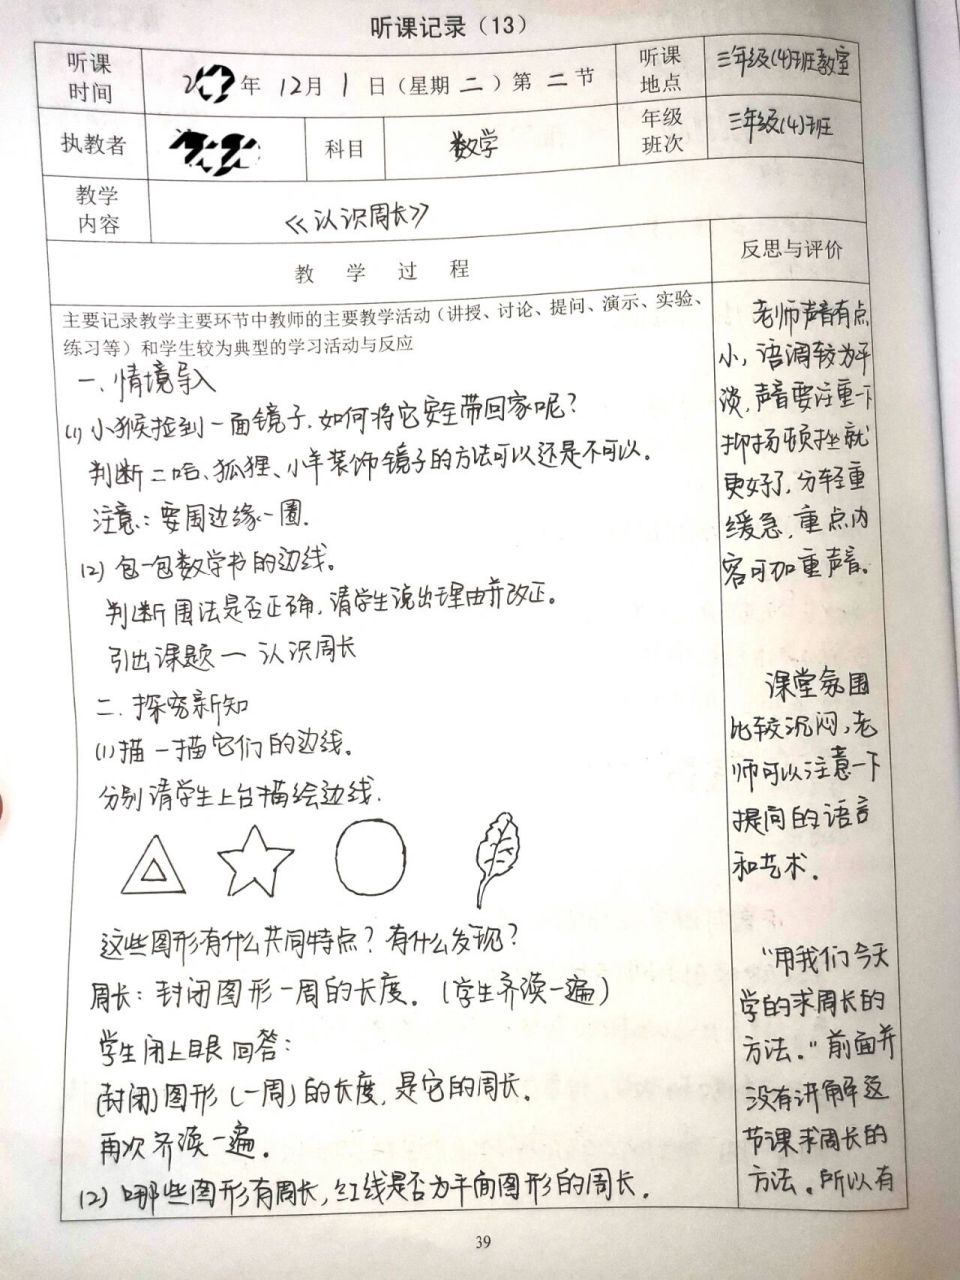 听课记录（13）
听课时间
2 年 12月 1 日（星期 二）第 二 节
听课地点
三年级(4)班教室
执教者
科目
数学
年级班次
三年级(4)班
教学内容
《认识周长》
教 学 过 程
反思与评价
主要记录教学主要环节中教师的主要教学活动（讲授、讨论、提问、演示、实验、
练习等）和学生较为典型的学习活动与反应
一、情境导入
(1) 小猴捡到一面镜子，如何将它安全带回家呢？
判断二哈、狐狸、小羊装饰镜子的方法可以还是不可以。
注意：要围边缘一圈.
(2) 包一包数学书的边线。
判断围法是否正确，请学生说出理由并改正。
引出课题一 认识周长
二. 探究新知
(1)描一描它们的边线。
分别请学生上台描绘边线.
这些图形有什么共同特点？有什么发现？
周长：封闭图形一周的长度。（学生齐读一遍）
学生闭上眼回答：
(封闭)图形(一周)的长度，是它的周长。
再次齐读一遍。
(2) 哪些图形有周长，红线是否为平面图形的周长.
老师声音有点
小，语调较为平
淡，声音要注重一下
抑扬顿挫就
更好了，分轻重
缓急，重点内
容可加重声音。
课堂氛围
比较沉闷，老
师可以注意一下
提问的语言
和艺术.
“用我们今天
学的求周长的
方法。”前面并
没有讲解这
节课求周长的
方法。所以有
39